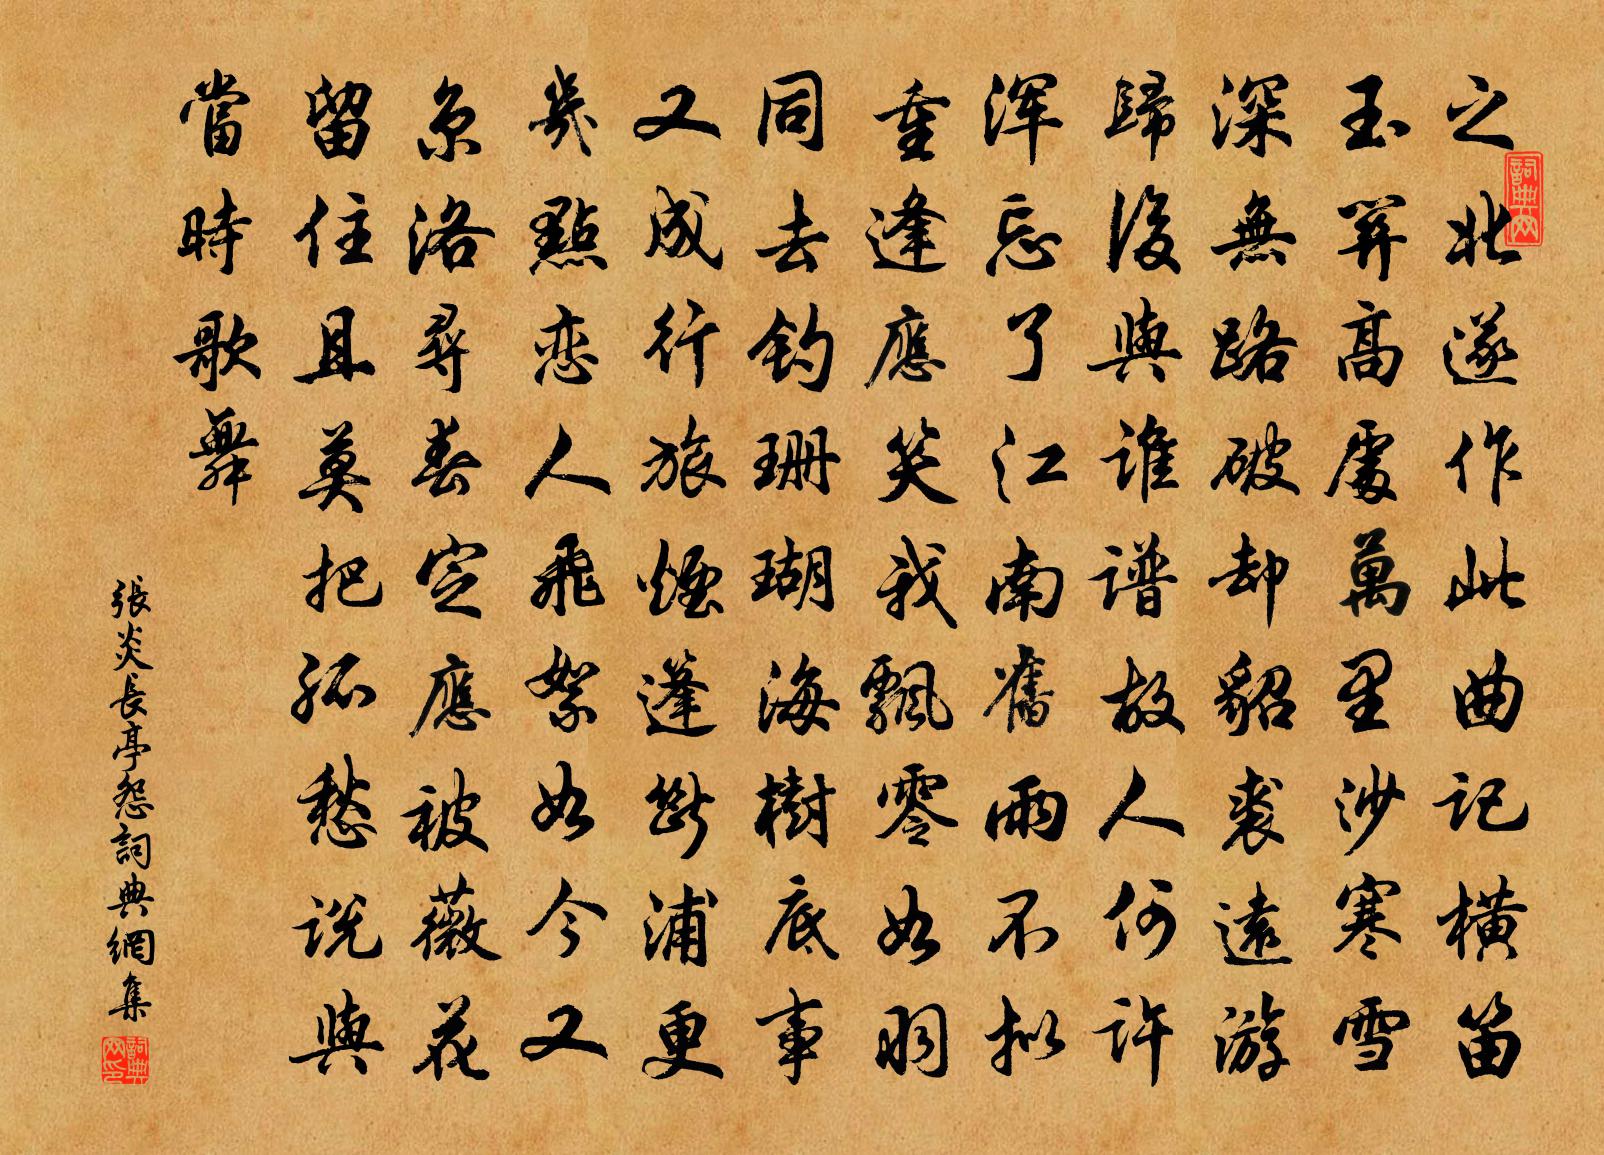 詞典网
之北遂作此曲記橫笛
玉關高處萬里沙寒雪
深無路破却貂裘遠游
歸後與誰譜故人何許
渾忘了江南舊雨不拟
重逢應笑我飄零如羽
同去釣珊瑚海樹底事
又成行旅煙篷斷浦更
幾點恋人飛絮如今又
京洛尋春定應被薇花
留住且莫把孤愁說與
當時歌舞
張炎長亭怨詞典網集
詞典网印